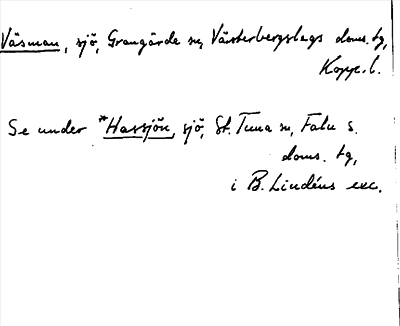 Väsman, sjö, Grangärde sn, Västerbergslags doms. tg,
Kopp. l.
Se under *Hassjön, sjö, St. Tuna sn, Falu s.
doms. tg,
i B. Lindéns exc.